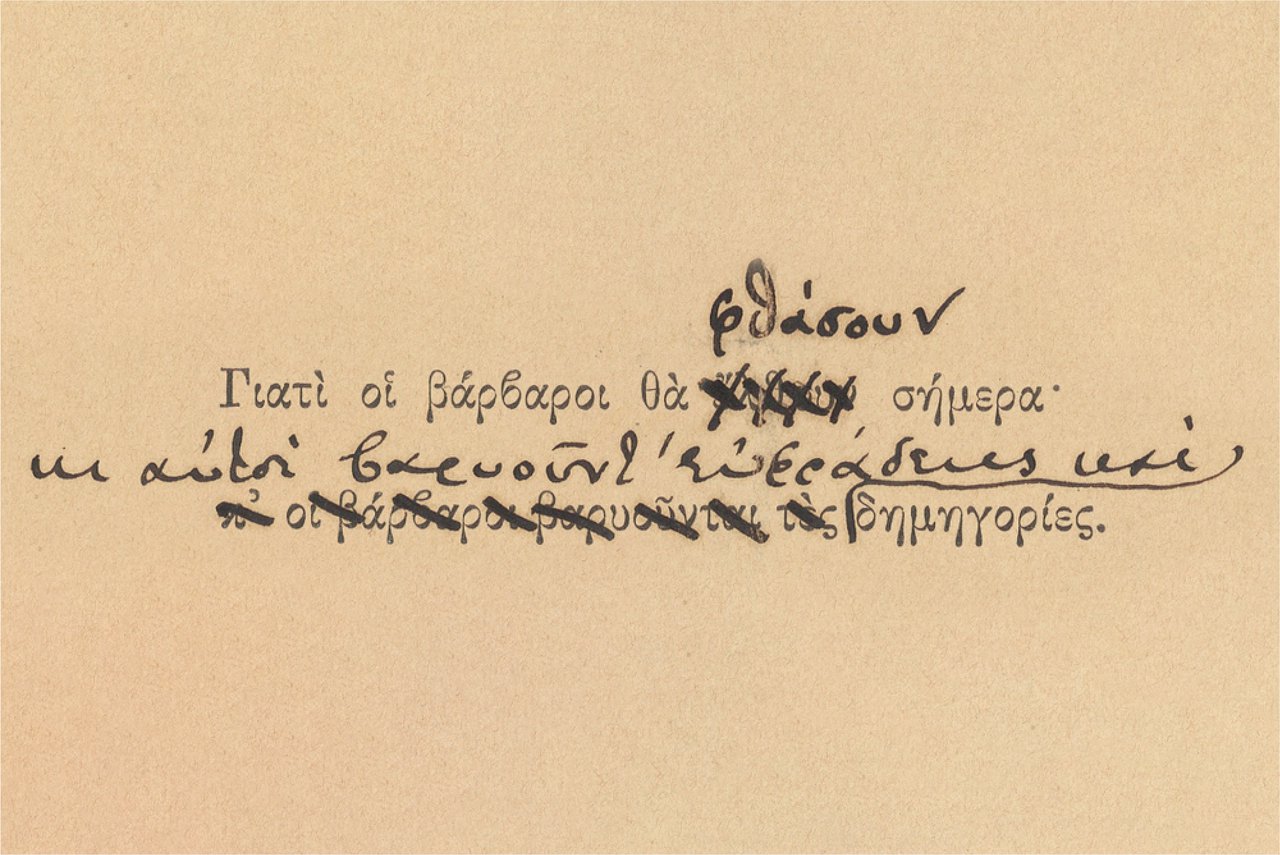 φθάσουν
Γιατὶ οἱ βάρβαροι θὰ σήμερα·
κι αὐτοὶ βαρυοῦντ' εὐφράδειες καὶ
κ' οἱ βάρβαροι βαρυοῦνται τὲς δημηγορίες.